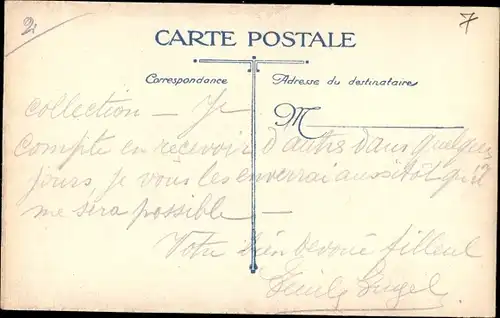 2
7
CARTE POSTALE
Correspondance
Adresse du destinataire
M
collection — Je
compte en recevoir d'autres dans quelques
jours, je vous les enverrai aussitôt qu'il
me sera possible —
Votre bien devoué filleul